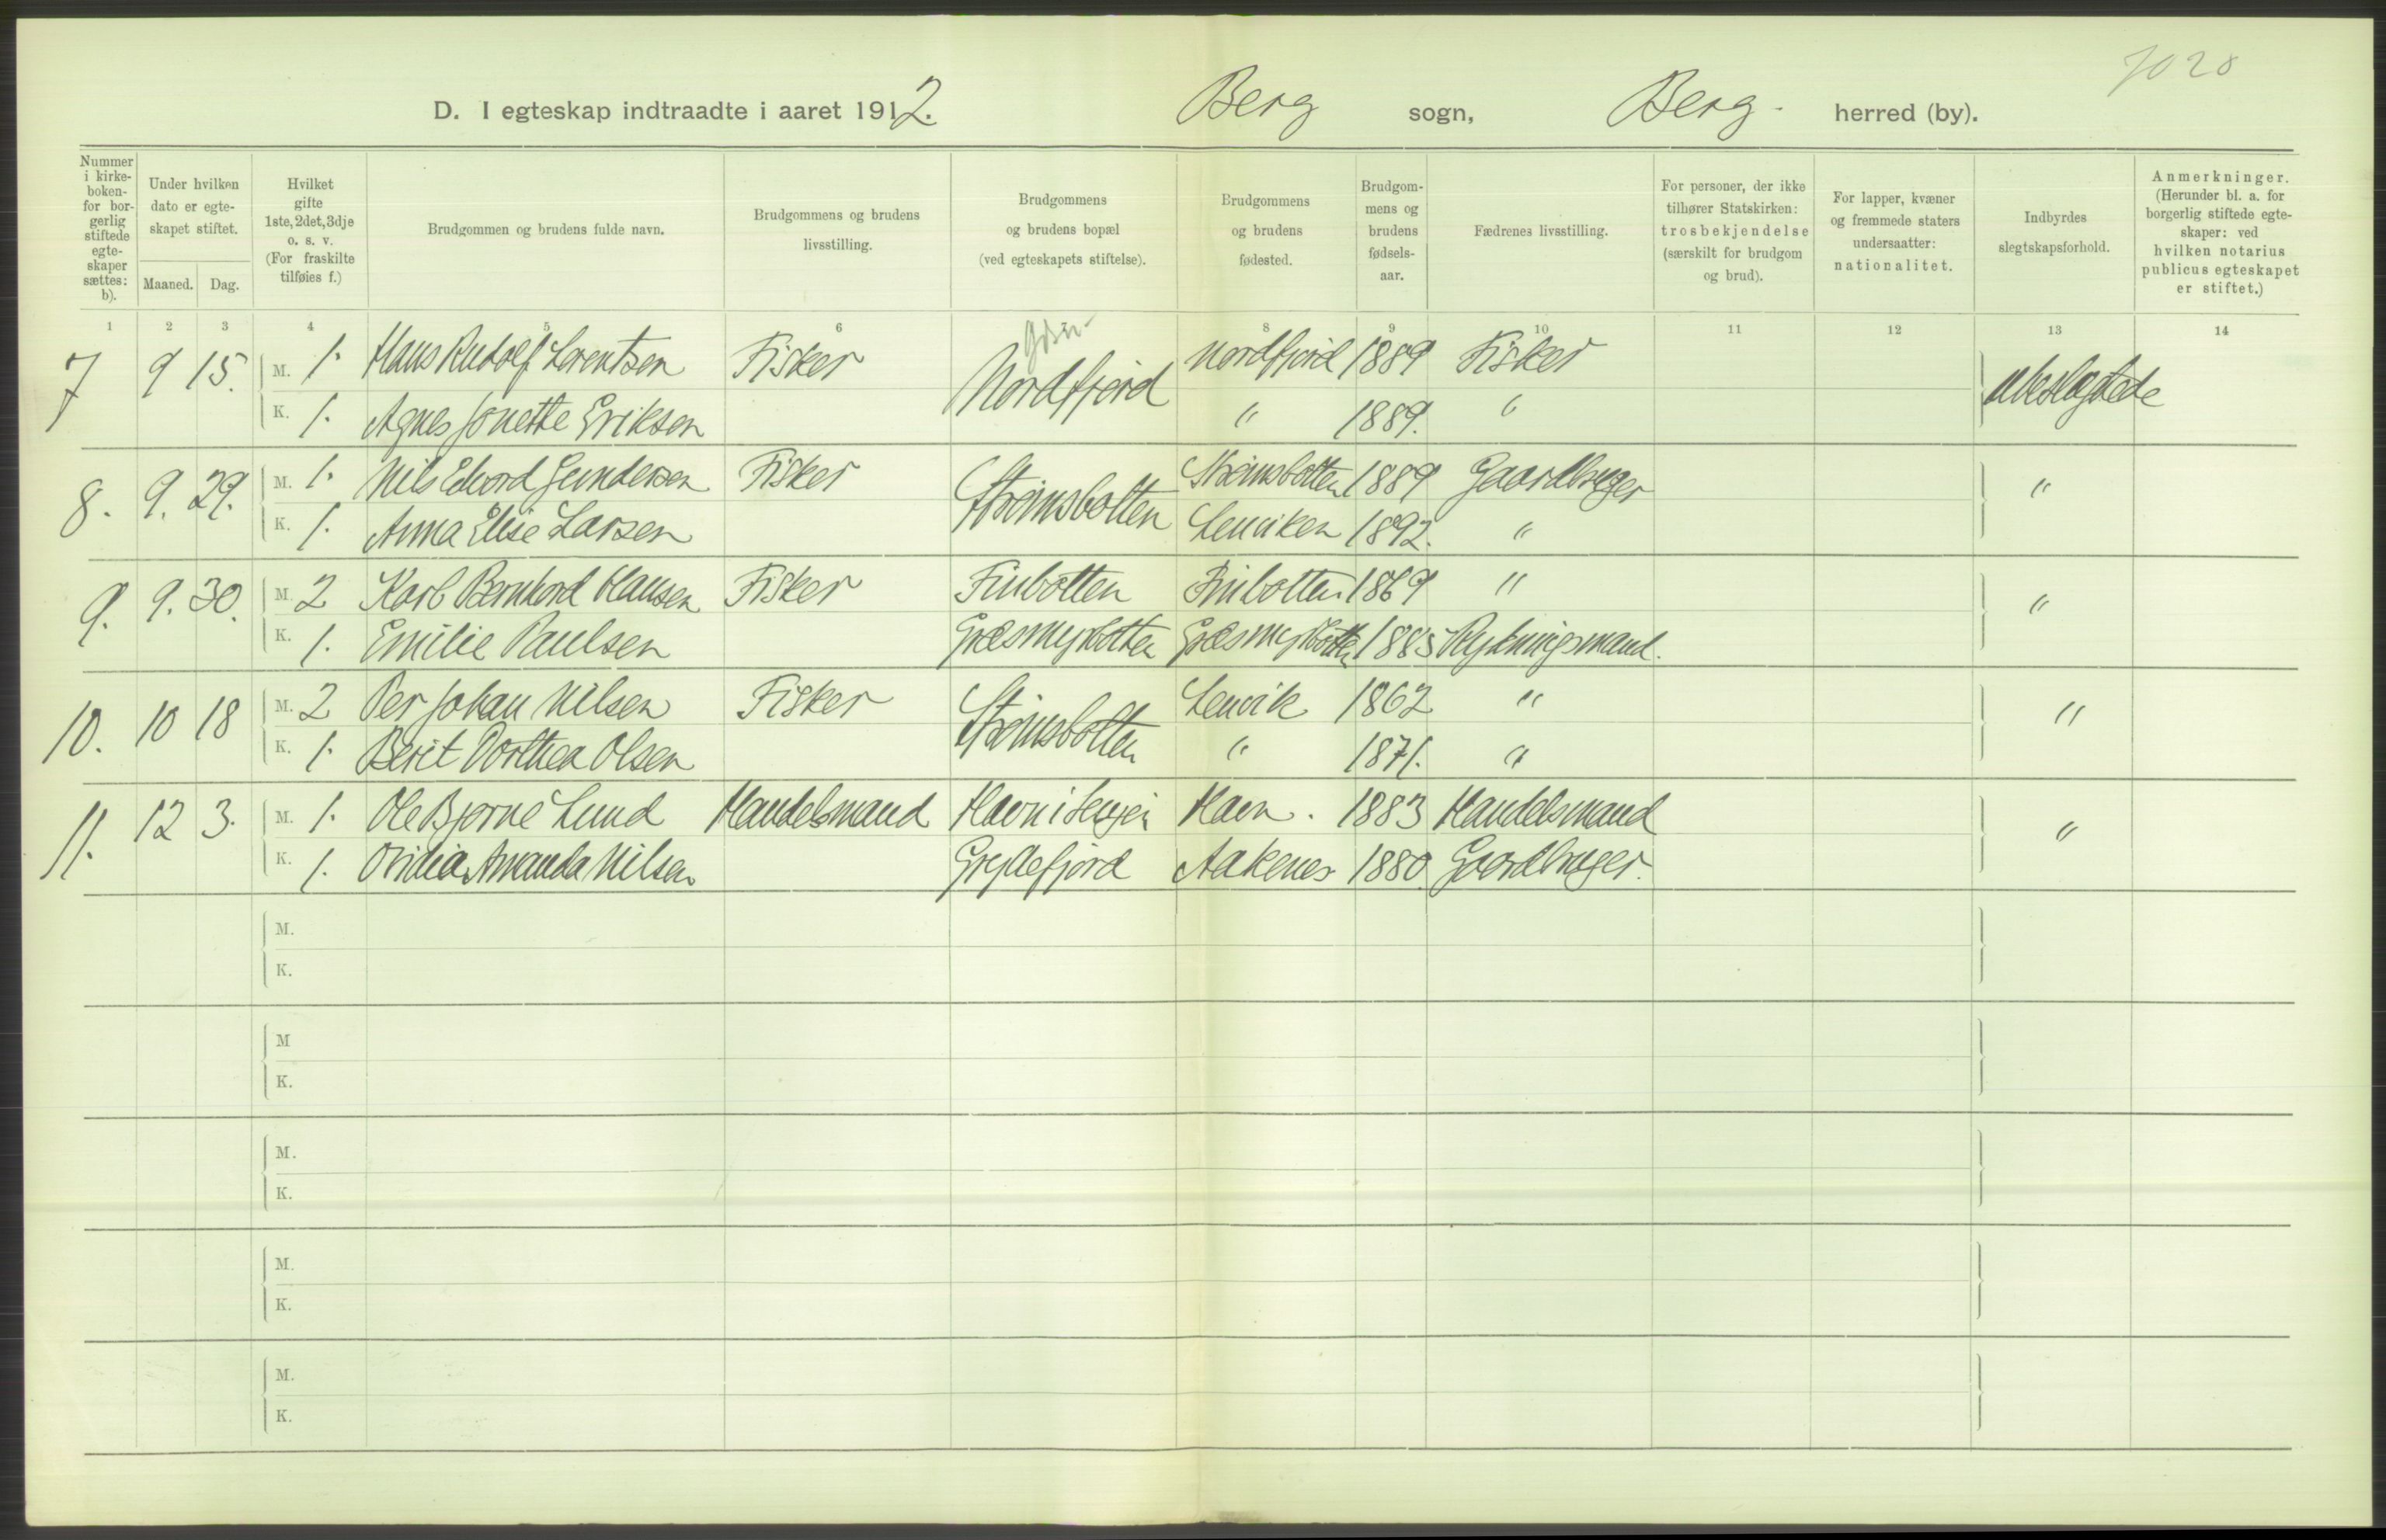 7020
D. I egteskap indtraadte i aaret 1912. Berg sogn, Berg. herred (by).
Nummer i kirke-boken- for bor-gerlig stiftede egte-skaper sættes: b).
Under hvilken dato er egte-skapet stiftet.
Maaned. Dag.
Hvilket gifte 1ste, 2det, 3dje o. s. v. (For fraskilte tilføies f.)
Brudgommen og brudens fulde navn.
Brudgommens og brudens livsstilling.
Brudgommens og brudens bopæl (ved egteskapets stiftelse).
Brudgommens og brudens fødested.
Brudgom-mens og brudens fødsels-aar.
Fædrenes livsstilling.
For personer, der ikke tilhører Statskirken: trosbekjendelse (særskilt for brudgom og brud).
For lapper, kvæner og fremmede staters undersaatter: nationalitet.
Indbyrdes slegtskapsforhold.
Anmerkninger. (Herunder bl. a. for borgerlig stiftede egte-skaper: ved hvilken notarius publicus egteskapet er stiftet.)
1 2 3 4 5 6 8 9 10 11 12 13 14
7 9 15. M. 1. Hans Rudolf Lorentsen Fisker Nordfjord Nordfjord 1889 Fisker ubeslegtede
K. 1. Agnes Jonette Eriksen " 1889. "
8. 9. 29. M. 1. Nils Edvard Gundersen Fisker Strømsbotten Strømsbotten 1889 Gaardbruger "
K. 1. Anna Elise Larsen Lenviken 1892. "
9. 9. 30. M. 2 Karl Bernhard Hansen Fisker Finbotten Finbotten 1869 " "
K. 1. Emilie Paulsen Græsmyrbotten Græsmyrbotten 1885 Rydningsmand.
10. 10 18 M. 2 Per Johan Nilsen Fisker Strømsbotten Lenvik 1862 " "
K. 1. Berit Dorthea Olsen " 1871. "
11. 12 3. M. 1. Ole Bjarne Lund Handelsmand Havn i Senjen Havn. 1883 Handelsmand "
K. 1. Ovidia Amanda Nilsen Gryllefjord Aakenes 1880. Gaardbruger.
M.
K.
M
K.
M.
K.
M.
K.
M.
K.